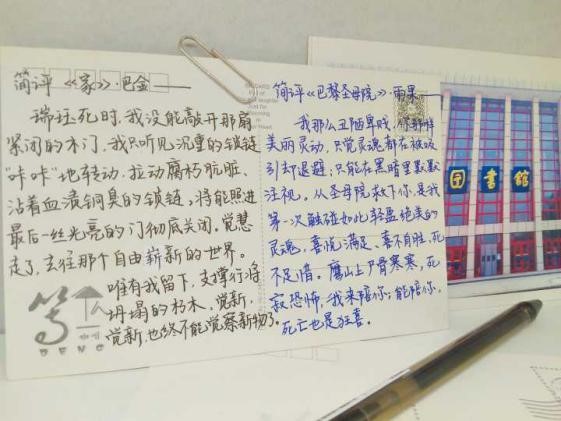 简评《家》·巴金
瑞珏死时,我没能敲开那扇
紧闭的木门,我只听见沉重的锁链
“咔咔”地转动,拉动腐朽肮脏、
沾着血渍铜臭的锁链,将能照进
最后一丝光亮的门彻底关闭。觉慧
走了,去往那个自由崭新的世界。
唯有我留下,支撑行将
坍塌的朽木,觉新,
觉新,也终不能觉察新物了。
简评《巴黎圣母院》·雨果
我那么丑陋卑贱,你那样
美丽灵动,只觉灵魂都在被吸
引却退避;只能在黑暗里默默
注视。从圣母院救下你,是我
第一次触碰如此轻盈绝美的
灵魂,喜悦满足、喜不自胜,死
不足惜。鹰山上尸骨寒寒,死
寂恐怖,我来陪你;能陪你,
死亡也是狂喜。
图書館